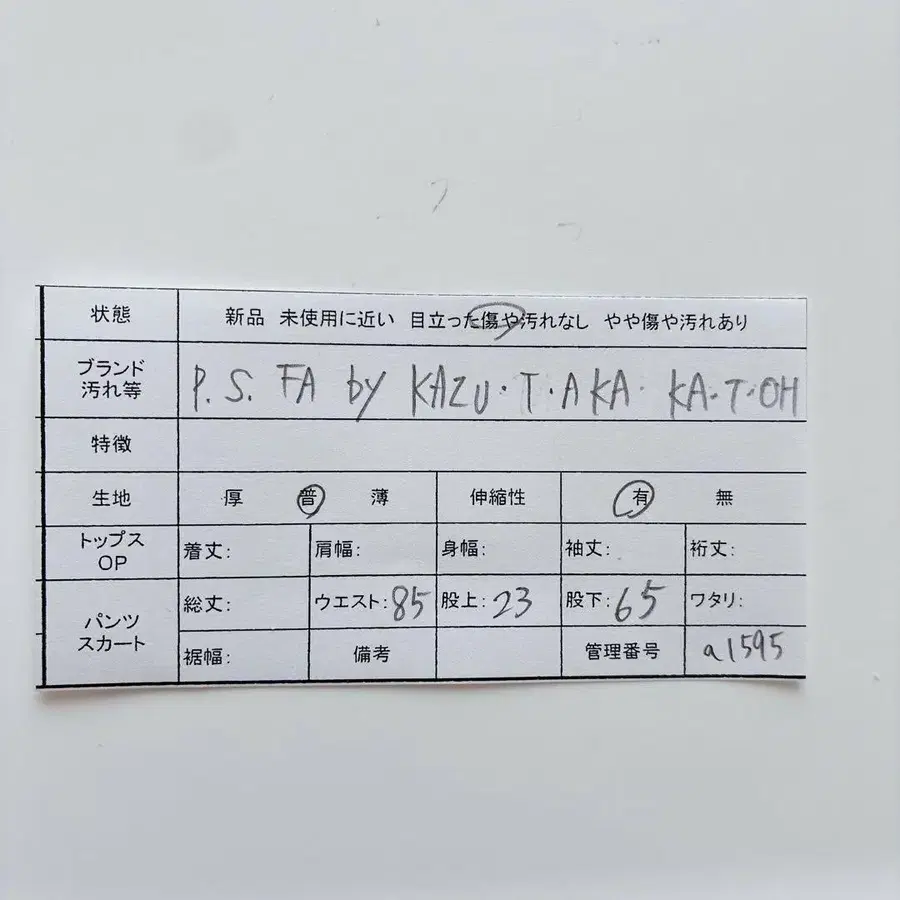 状態 新品 未使用に近い 目立った傷や汚れなし やや傷や汚れあり
ブランド
汚れ等 P. S. FA by KAZU・T・AKA・ KA・T・OH
特徴
生地 厚 普 薄 伸縮性 有 無
トップス
OP 着丈: 肩幅: 身幅: 袖丈: 裄丈:
パンツ
スカート 総丈: ウエスト:85 股上:23 股下:65 ワタリ:
裾幅: 備考 管理番号 a1595